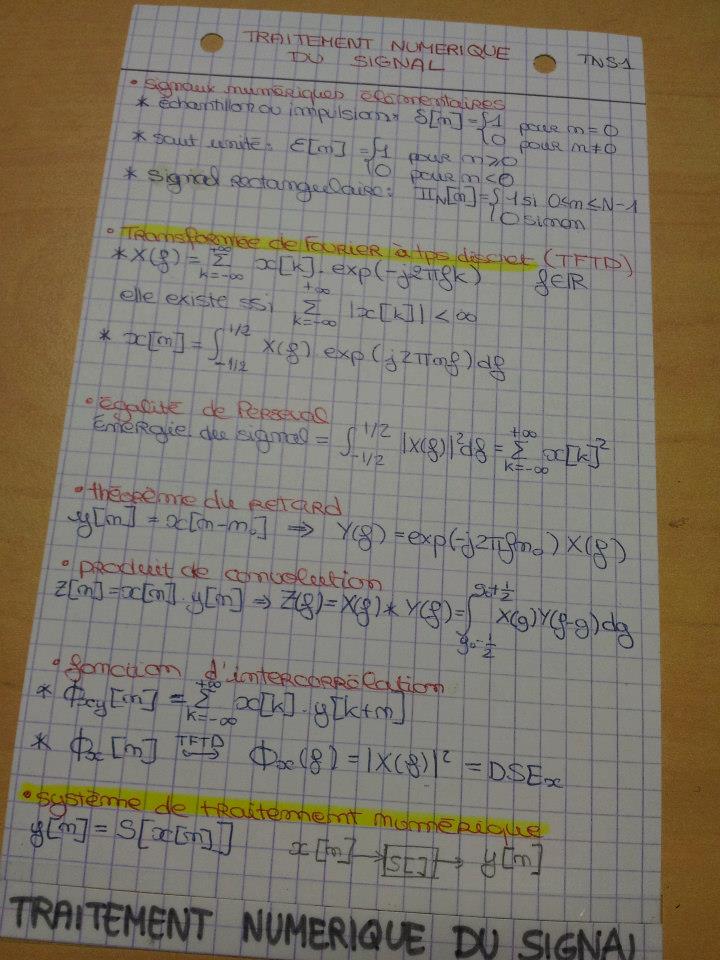 TRAITEMENT NUMERIQUE
DU SIGNAL
TNS1
• signaux numériques élémentaires
* échantillon ou impulsion: δ[n] = {1 pour n = 0
0 pour n ≠ 0
* saut unité: ε[n] = {1 pour n ≥ 0
0 pour n < 0
* signal rectangulaire: Π_N[n] = {1 si 0 ≤ n ≤ N-1
0 sinon
• Transformée de FOURIER à tps discret (TFTD)
* X(f) = Σ_{k=-∞}^{+∞} x[k].exp(-j2πfk) f∈ℝ
elle existe ssi Σ_{k=-∞}^{+∞} |x[k]| < ∞
* x[n] = ∫_{-1/2}^{1/2} X(f) exp(j2πnf)df
• égalité de Perseval
Energie du signal = ∫_{-1/2}^{1/2} |X(f)|²df = Σ_{k=-∞}^{+∞} x[k]²
• théorème du retard
y[n] = x[n-n₀] ⇒ Y(f) = exp(-j2πfn₀) X(f)
• produit de convolution
z[n] = x[n].y[n] ⇒ Z(f) = X(f) * Y(f) = ∫_{g₀-1/2}^{g₀+1/2} X(g)Y(f-g)dg
• fonction d'intercorrélation
* Φxy[n] = Σ_{k=-∞}^{+∞} x[k].y[k+n]
* Φx[n] TFTD ↔ Φx(f) = |X(f)|² = DSEx
• système de traitement numérique
y[n] = S[x[n]] x[n] → [S[]] → y[n]
TRAITEMENT NUMERIQUE DU SIGNAL